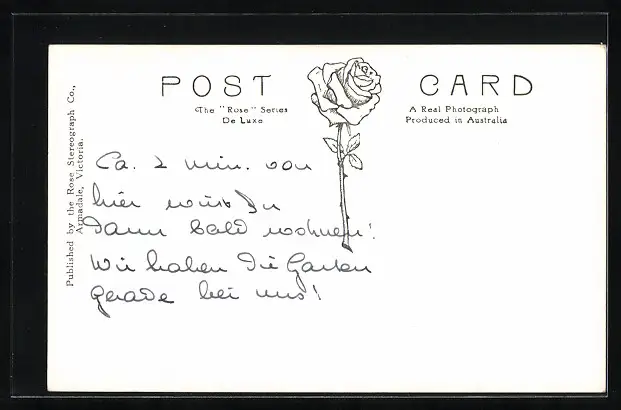 POST CARD
The "Rose" Series
De Luxe
A Real Photograph
Produced in Australia
Published by the Rose Stereograph Co.,
Armadale, Victoria.
Ca. 2 min. von
hier wirst Du
Dann bald wohnen!
Wir haben die Garten
gerade bei uns!